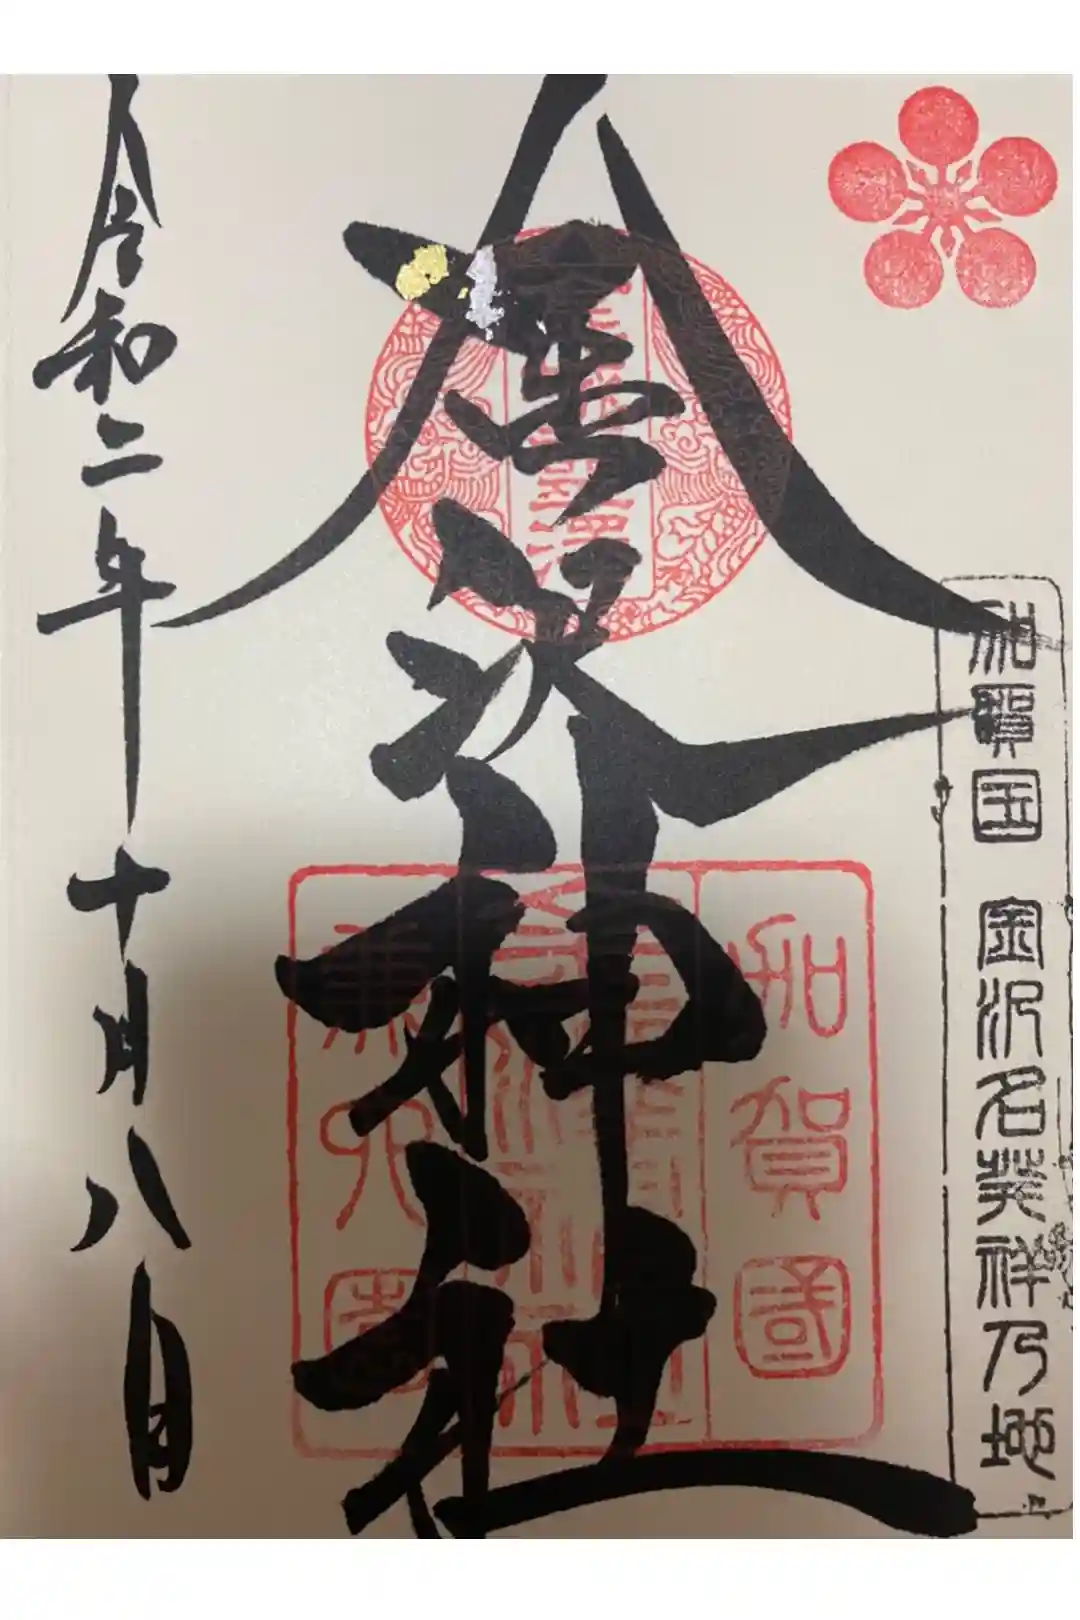 加賀国 金沢名発祥乃地
金澤神社
加賀國
金澤神社
兼六園
令和二年十月八日